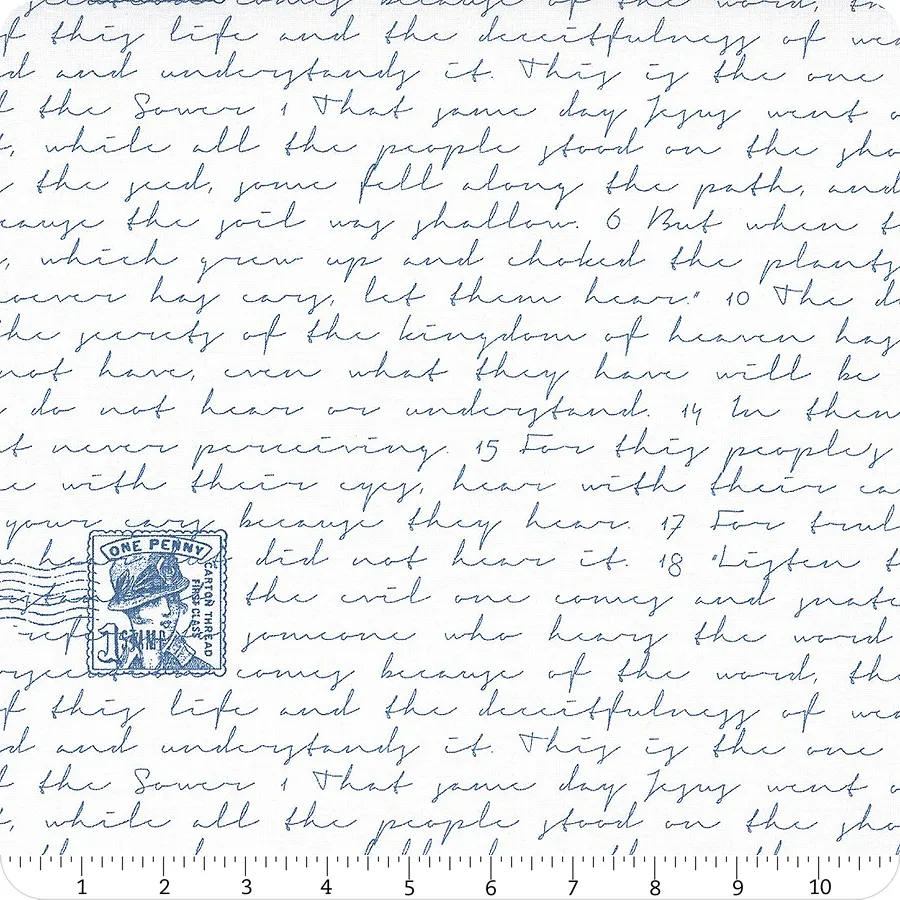 because of the word, th
f this life and the deceitfulness of wea
d and understands it. This is the one
f the Sower 1 That same day Jesus went o
t, while all the people stood on the sho
the seed, some fell along the path, and
cause the soil was shallow. 6 But when t
, which grew up and choked the plants
oever has ears, let them hear." 10 The d
he secrets of the kingdom of heaven has
not have, even what they have will be
do not hear or understand. 14 In them
t never perceiving. 15 For this people's
e with their eyes, hear with their ea
your ears because they hear. 17 For trul
he did not hear it. 18 "Listen t
ONE PENNY
CARTON THREAD
FIRST CLASS
the evil one comes and snatc
someone who hears the word
comes because of the word, the
f this life and the deceitfulness of wea
d and understands it. This is the one
f the Sower 1 That same day Jesus went o
t, while all the people stood on the sho
1 2 3 4 5 6 7 8 9 10